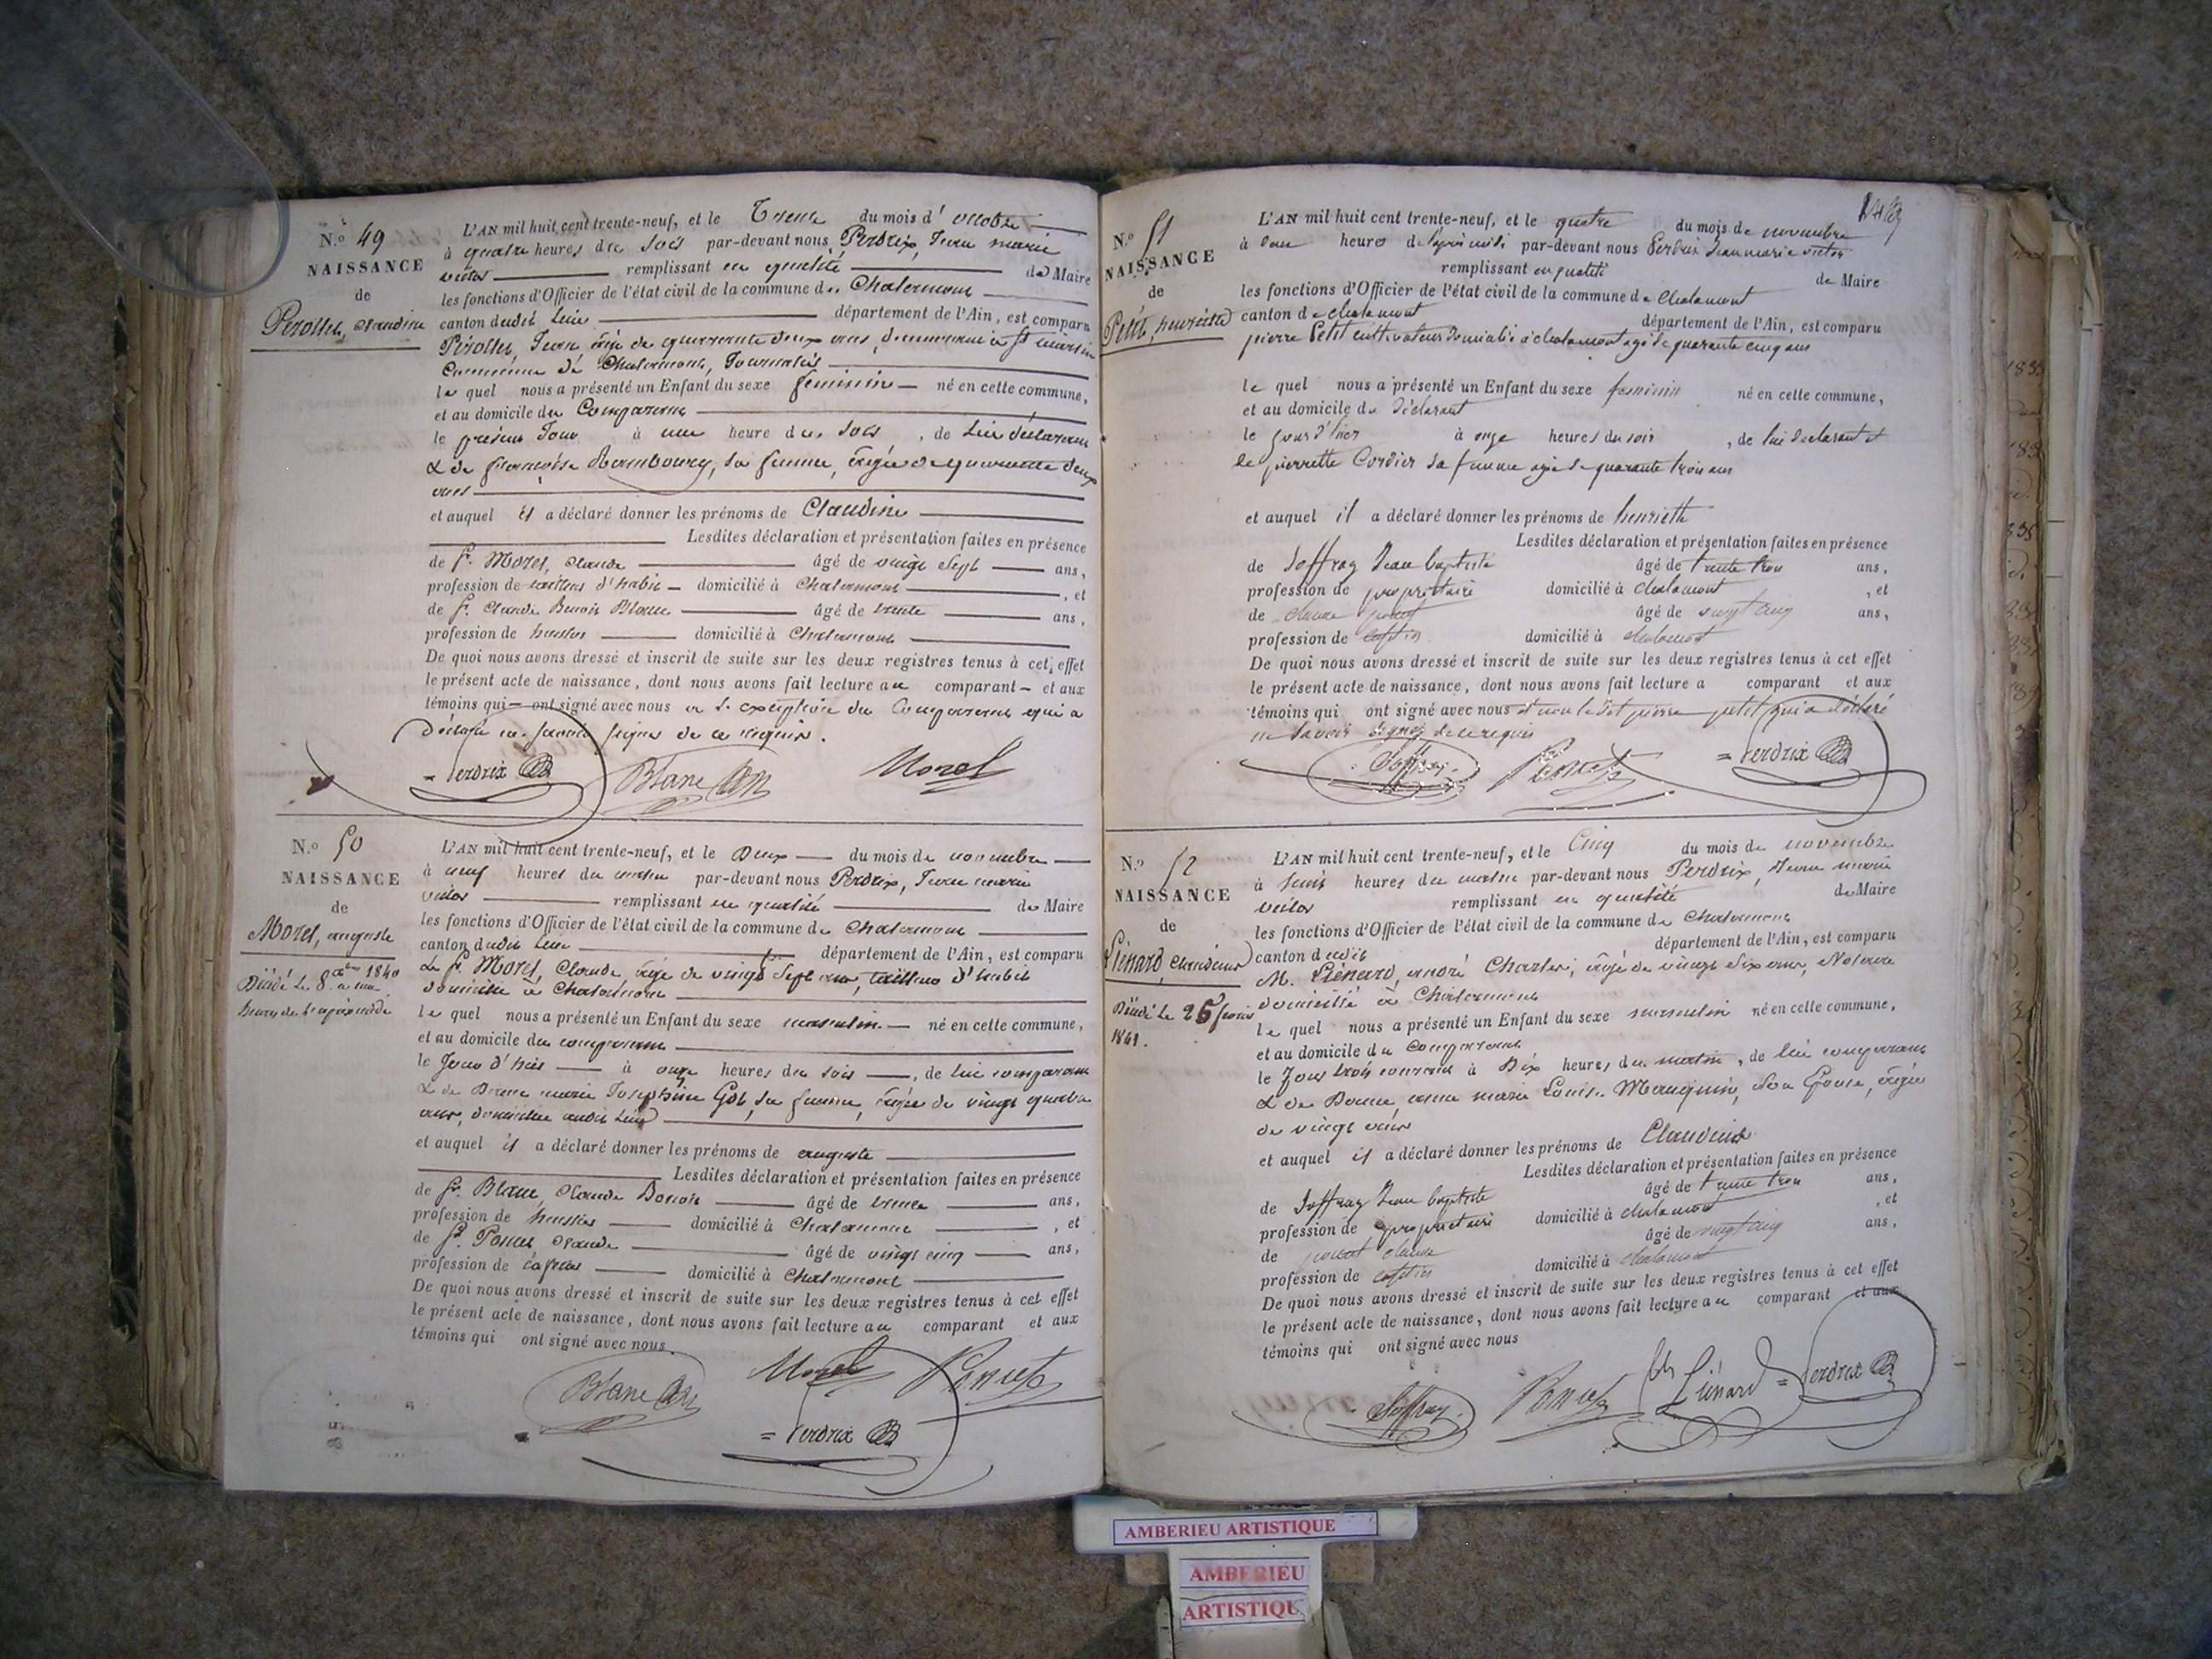 N.o 49
NAISSANCE
de
Perollet, Claudine
L'AN mil huit cent trente-neuf, et le Trente du mois d' octobre
à quatre heures du soir par-devant nous, Perdrix, Jean marie
victor remplissant en qualité de Maire
les fonctions d'Officier de l'état civil de la commune de Chalamont
canton dudit lieu département de l'Ain, est comparu
Pérollet, Jean, âgé de quarante deux ans, demeurant à St martin
Commune de Chalamont, Journalier
le quel nous a présenté un Enfant du sexe feminin né en cette commune,
et au domicile du Comparant
le présent Jour à une heure du soir, de lui déclarant
& de françoise Rambourg, sa femme, âgée de quarante deux
ans
et auquel il a déclaré donner les prénoms de Claudine
Lesdites déclaration et présentation faites en présence
de Sr. Morel, Claude âgé de vingt sept ans,
profession de tailleur d'habit domicilié à Chalamont, et
de Sr. Claude Benoit Blanc âgé de trente ans,
profession de huissier domicilié à Chalamont
De quoi nous avons dressé et inscrit de suite sur les deux registres tenus à cet effet
le présent acte de naissance, dont nous avons fait lecture au comparant et aux
témoins qui ont signé avec nous a l'exception du Comparant qui a
Déclaré ne savoir signer de ce requis.
Perdrix Blanc Morel
N.o 50
NAISSANCE
de
Morel, auguste
Décédé le 8 1840
L'AN mil huit cent trente-neuf, et le Deux du mois de novembre
à neuf heures du matin par-devant nous Perdrix, Jean marie
victor remplissant en qualité de Maire
les fonctions d'Officier de l'état civil de la commune de Chalamont
canton dudit lieu département de l'Ain, est comparu
Le Sr. Morel, Claude, âgé de vingt sept ans, tailleur d'habit
domicilié à Chalamont
le quel nous a présenté un Enfant du sexe masculin né en cette commune,
et au domicile du comparant
le Jour d'hier à onze heures du soir, de lui comparant
& de Dame marie Josephine Gob, sa femme, âgée de vingt quatre
ans, domiciliée audit lieu
et auquel il a déclaré donner les prénoms de auguste
Lesdites déclaration et présentation faites en présence
de Sr. Blanc, Claude Benoit âgé de trente ans,
profession de huissier domicilié à Chalamont, et
de Sr. Poncet Claude âgé de vingt cinq ans,
profession de cafetier domicilié à Chalamont
De quoi nous avons dressé et inscrit de suite sur les deux registres tenus à cet effet
le présent acte de naissance, dont nous avons fait lecture au comparant et aux
témoins qui ont signé avec nous.
Blanc Morel Poncet
Perdrix
N.o 51
NAISSANCE
de
Petit, henriette
L'AN mil huit cent trente-neuf, et le quatre du mois de novembre
à heures par-devant nous Perdrix Jean marie victor
remplissant en qualité de Maire
les fonctions d'Officier de l'état civil de la commune de Chalamont
canton de chalamont département de l'Ain, est comparu
pierre Petit cultivateur domicilié à chalamont agé de quarante cinq ans
le quel nous a présenté un Enfant du sexe feminin né en cette commune,
et au domicile du déclarant
le jour d'hier à onze heures du soir, de lui declarant et
de pierrette Cordier sa femme agée de quarante trois ans
et auquel il a déclaré donner les prénoms de henrieth
Lesdites déclaration et présentation faites en présence
de Joffray Jean baptiste âgé de trente trois ans,
profession de propriétaire domicilié à chalamont, et
de claude poncet âgé de vingt cinq ans,
profession de cafetier domicilié à chalamont
De quoi nous avons dressé et inscrit de suite sur les deux registres tenus à cet effet
le présent acte de naissance, dont nous avons fait lecture a comparant et aux
témoins qui ont signé avec nous et non le dit pierre petit qui a déclaré
ne savoir signer de ce requis
Joffray Poncet Perdrix
N.o 52
NAISSANCE
de
Liénard, Claudius
Décédé le 25 1841.
L'AN mil huit cent trente-neuf, et le Cinq du mois de novembre
à heures du matin par-devant nous Perdrix, Jean marie
victor remplissant en qualité de Maire
les fonctions d'Officier de l'état civil de la commune de Chalamont
canton dudit département de l'Ain, est comparu
M. Liénard, andré Charles, âgé de vingt six ans, Notaire
domicilié à Chalamont
le quel nous a présenté un Enfant du sexe masculin né en cette commune,
et au domicile du Comparant
le Jour trois courant à Dix heures du matin, de lui comparant
& de Dame, anne marie Louise Mauquin, son Epouse, âgée
de vingt ans
et auquel il a déclaré donner les prénoms de Claudius
Lesdites déclaration et présentation faites en présence
de Joffray Jean baptiste âgé de trente trois ans,
profession de propriétaire domicilié à chalamont, et
de poncet claude âgé de vingt cinq ans,
profession de cafetier domicilié à chalamont
De quoi nous avons dressé et inscrit de suite sur les deux registres tenus à cet effet
le présent acte de naissance, dont nous avons fait lecture au comparant et aux
témoins qui ont signé avec nous
Joffray Poncet Liénard Perdrix
AMBERIEU ARTISTIQUE
AMBERIEU
ARTISTIQUE